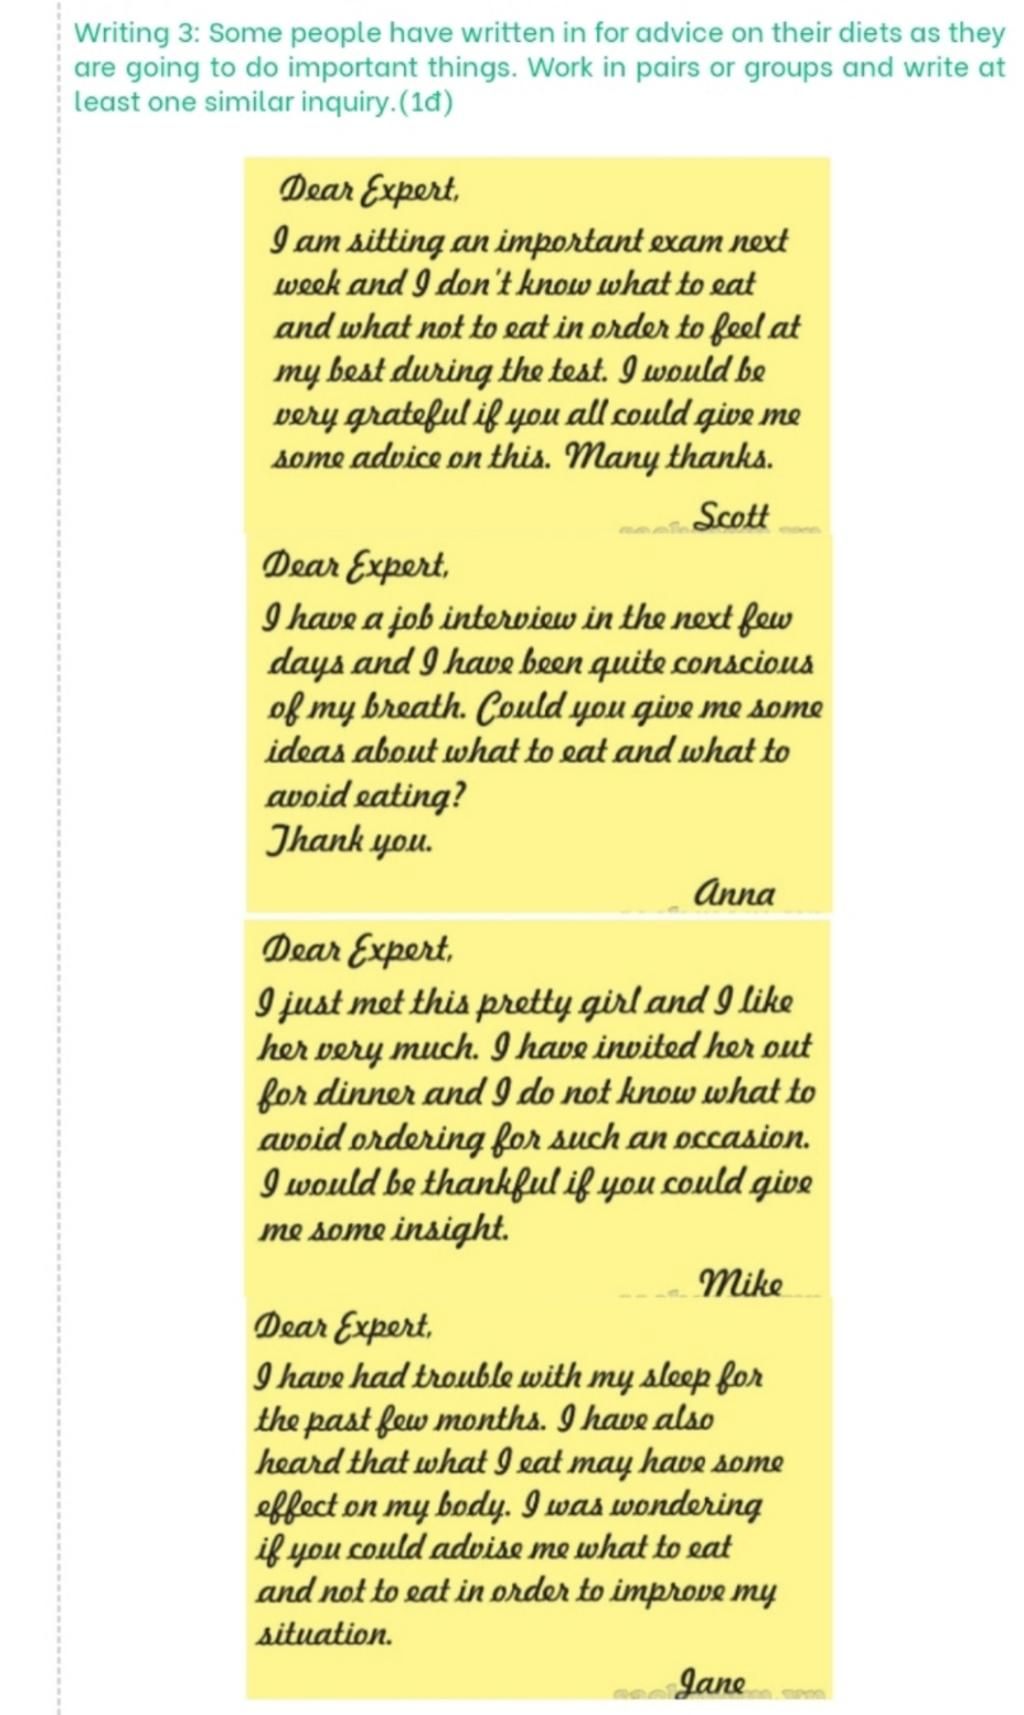 Writing 3: Some people have written in for advice on their diets as they
are going to do important things. Work in pairs or groups and write at
least one similar inquiry.(1đ)
Dear Expert,
I am sitting an important exam next
week and I don't know what to eat
and what not to eat in order to feel at
my best during the test. I would be
very grateful if you all could give me
some advice on this. Many thanks.
Scott
Dear Expert,
I have a job interview in the next few
days and I have been quite conscious
of my breath. Could you give me some
ideas about what to eat and what to
avoid eating?
Thank you.
Anna
Dear Expert,
I just met this pretty girl and I like
her very much. I have invited her out
for dinner and I do not know what to
avoid ordering for such an occasion.
I would be thankful if you could give
me some insight.
Mike
Dear Expert,
I have had trouble with my sleep for
the past few months. I have also
heard that what I eat may have some
effect on my body. I was wondering
if you could advise me what to eat
and not to eat in order to improve my
situation.
Jane